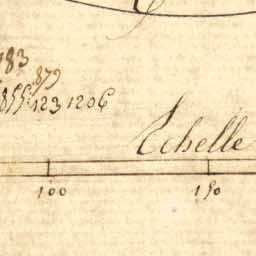 183
879
855:123 1206
Echelle
100 150